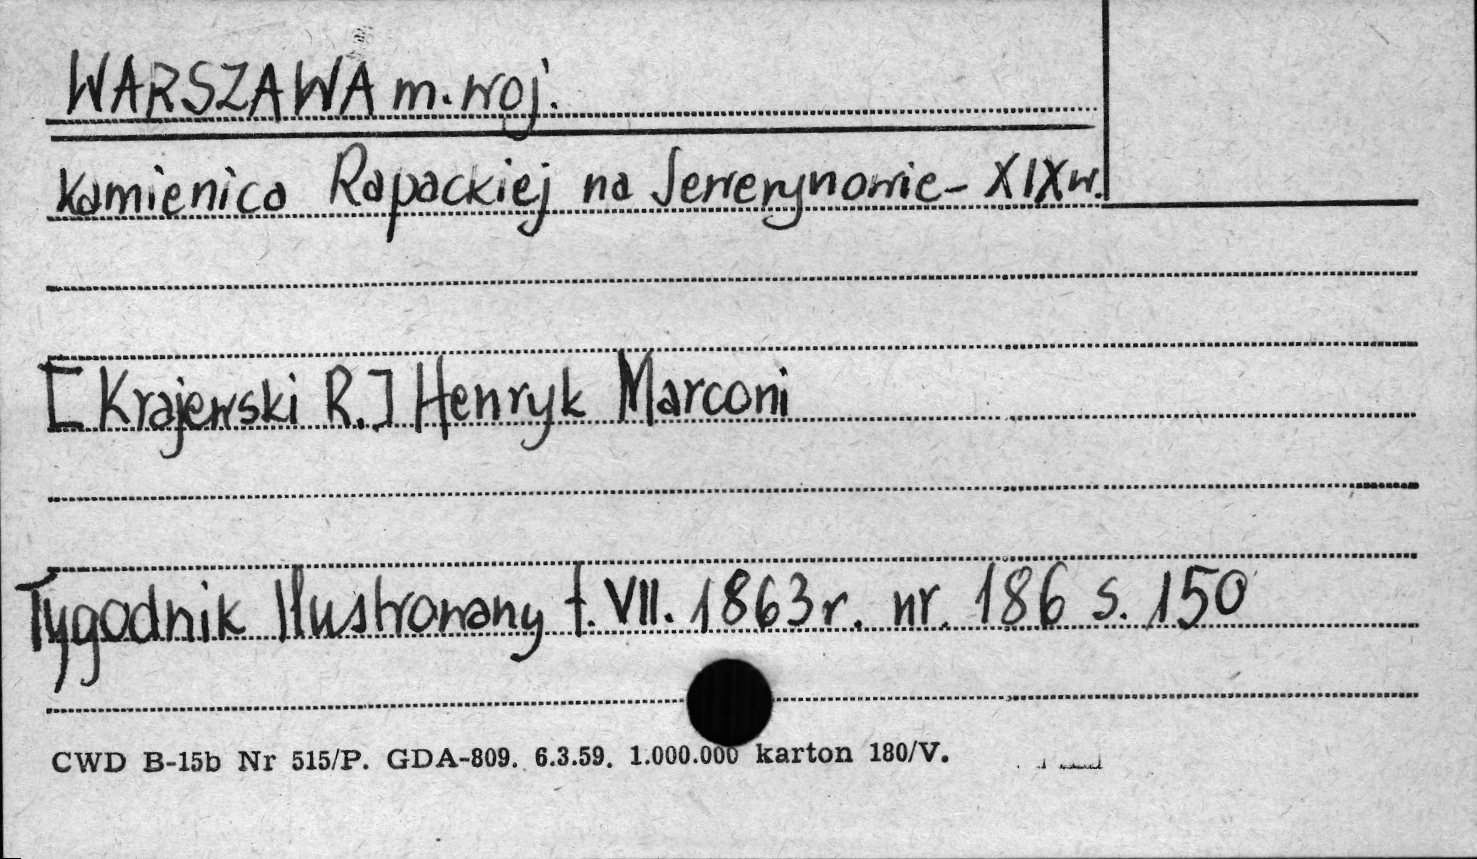 WARSZAWA m. woj.
Kamienica Rapackiej na Sewerynowie - XIX w.
[Krajewski R.] Henryk Marconi
Tygodnik Ilustrowany t. VII. 1863 r. nr. 186 s. 150
CWD B-15b Nr 515/P. GDA-809. 6.3.59. 1.000.000 karton 180/V.